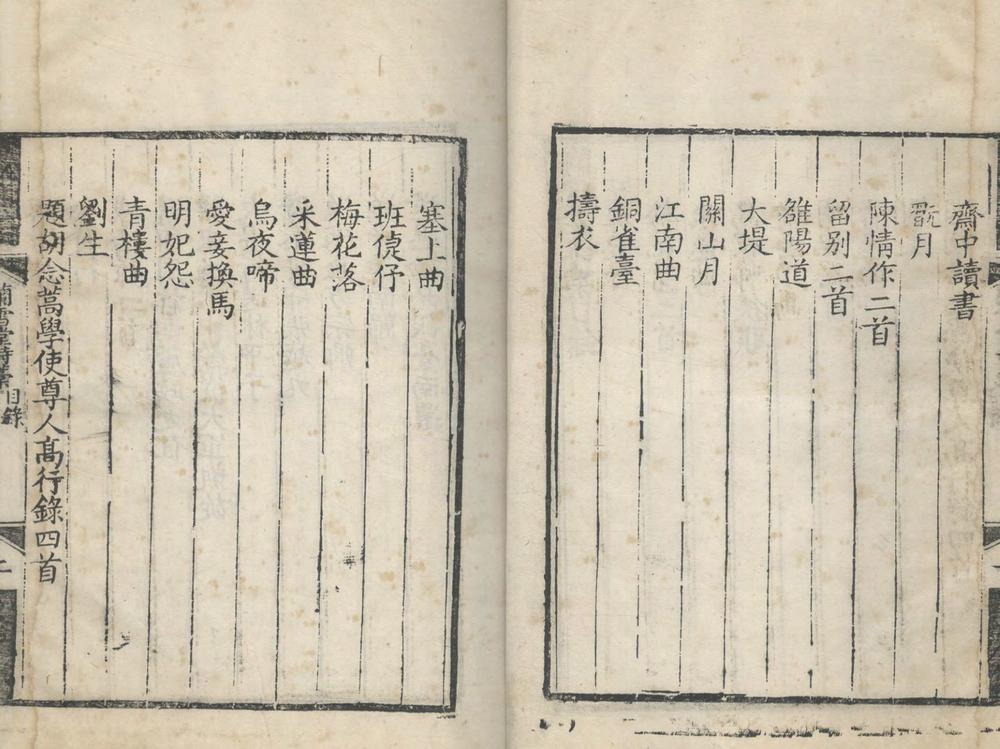 齋中讀書
翫月
陳情作二首
留别二首
雒陽道
大堤
關山月
江南曲
銅雀臺
擣衣
塞上曲
班倢伃
梅花落
采蓮曲
烏夜啼
愛妾換馬
明妃怨
青樓曲
劉生
題胡念蒿學使尊人高行錄四首
目錄
二